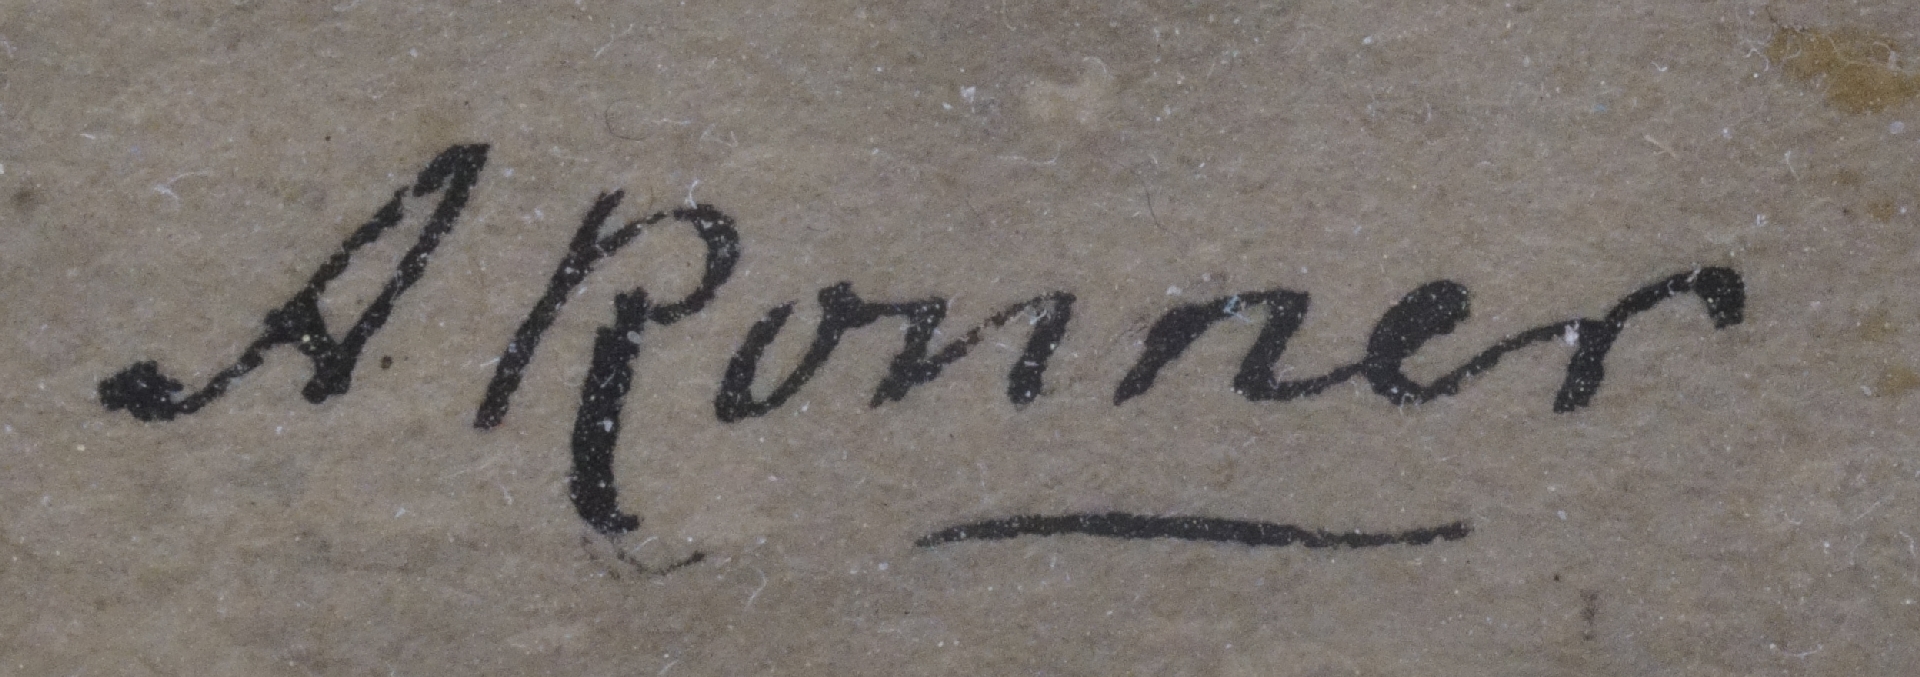 A. Ronner